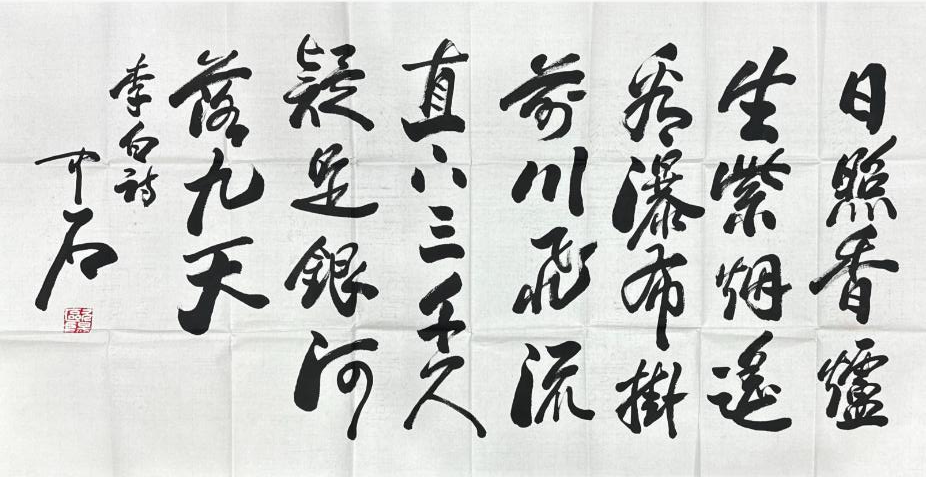 日照香爐
生紫烟遙
看瀑布掛
前川飛流
直下三千尺
疑是銀河
落九天
李白詩
中石